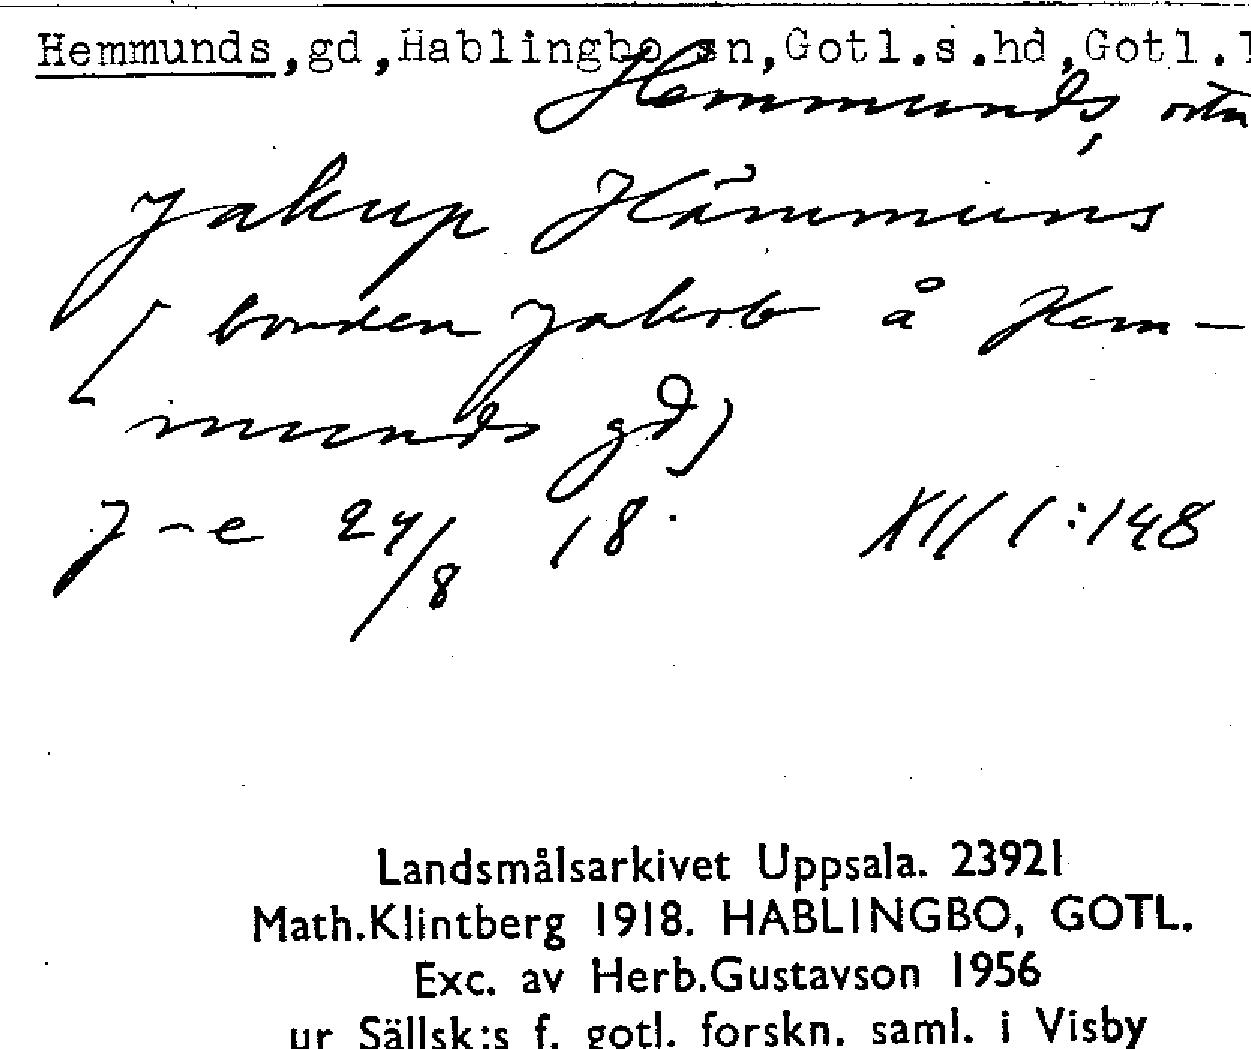 Hemmunds,gd,Hablingbo sn,Gotl.s.hd,Gotl.l
Hemmunds, ortn
Jakup Hämmuns
(bonden Jakob å Hem-
munds gd)
J-e 24/8 18. XII 1:148
Landsmålsarkivet Uppsala. 23921
Math.Klintberg 1918. HABLINGBO, GOTL.
Exc. av Herb.Gustavson 1956
ur Sällsk:s f. gotl. forskn. saml. i Visby